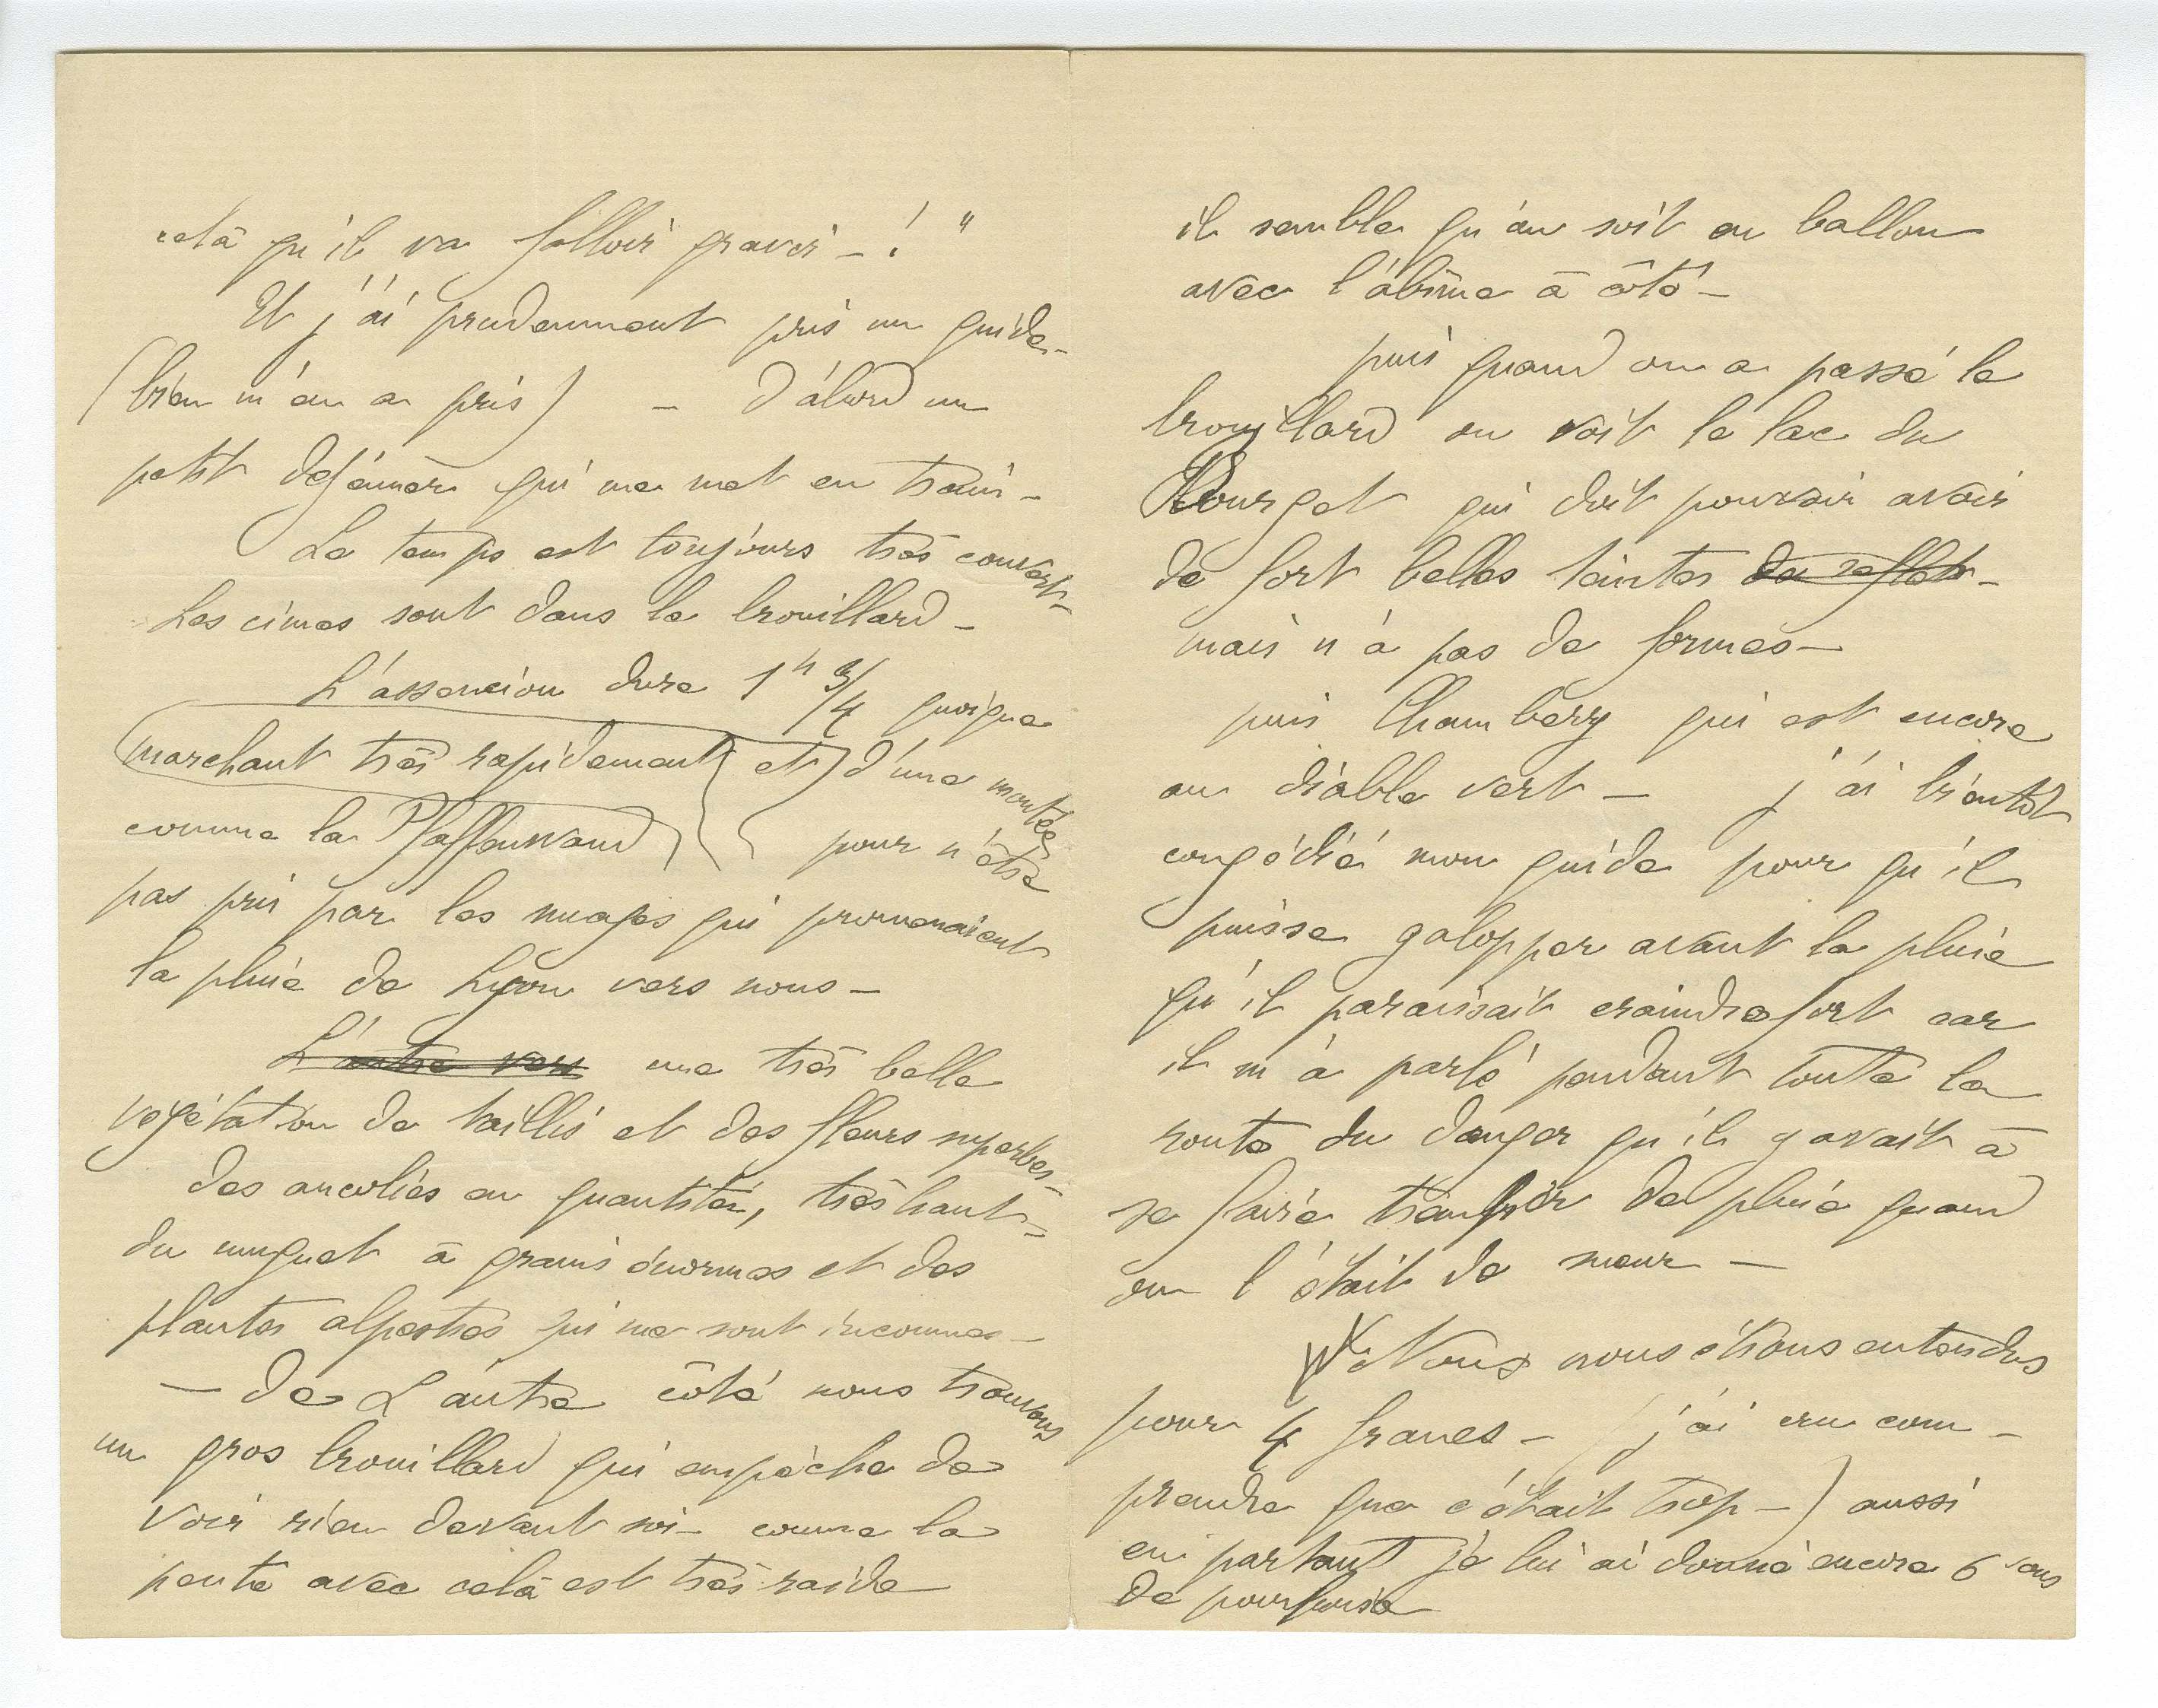 celà qu'il va falloir gravir — ! "
Et j'ai prudemment pris un guide —
(bien m'en a pris) — D'abord un
petit déjeuner qui me met en train —
Le temps est toujours très couvert —
Les cimes sont dans le brouillard —
L'assencion dure 1h 3/4 quoique
marchant très rapidement et d'une montée
comme la Pfaffenwand pour n'être
pas pris par les nuages qui promenaient
la pluie de Lyon vers nous —
L'autre vers une très belle
végétation de taillis et des fleurs superbes —
des ancolies en quantité, très haut —
du muguet à grains énormes et des
plantes alpestres qui me sont inconnues —
— de L'autre côté nous trouvons
un gros brouillard qui empêche de
voir rien devant soi — comme la
pente avec celà est très raide
il semble qu'on soit en ballon
avec l'abîme à côté —
puis quand on a passé le
brouillard on voit le lac du
Bourget qui doit pouvoir avoir
de fort belles teintes de reflets —
mais n'a pas de formes —
puis Chambéry qui est encore
au diable vert — j'ai bientôt
congédié mon guide pour qu'il
puisse galopper avant la pluie
qu'il paraissait craindre fort car
il m'a parlé pendant toute la
route du danger qu'il y avait à
se faire transir de pluie quand
on l'était de sueur —
Nous nous étions entendus
pour 4 francs — j'ai cru com —
prendre que c'était trop —) aussi
en partant je lui ai donné encore 6 sous
de pourboire